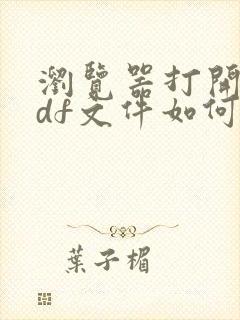 瀏覽器打開
df文件如何
葉子楣